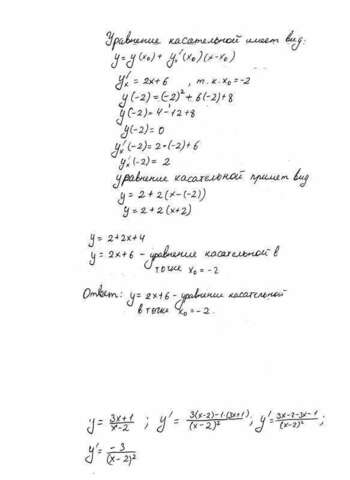 Уравнение касательной имеет вид:
y = y(x₀) + yₓ'(x₀)(x-x₀)
yₓ' = 2x+6 , т.к. x₀=-2
y(-2) = (-2)² + 6(-2)+8
y(-2) = 4-12+8
y(-2) = 0
yₓ'(-2) = 2·(-2)+6
yₓ'(-2) = 2
уравнение касательной примет вид
y = 2+2(x-(-2))
y = 2+2(x+2)
y = 2+2x+4
y = 2x+6 - уравнение касательной в
точке x₀=-2
Ответ: y = 2x+6 - уравнение касательной
в точке x₀=-2.
y = \frac{3x+1}{x-2} ; y' = \frac{3(x-2)-1·(3x+1)}{(x-2)²} ; y' = \frac{3x-2-3x-1}{(x-2)²} ;
y' = \frac{-3}{(x-2)²}